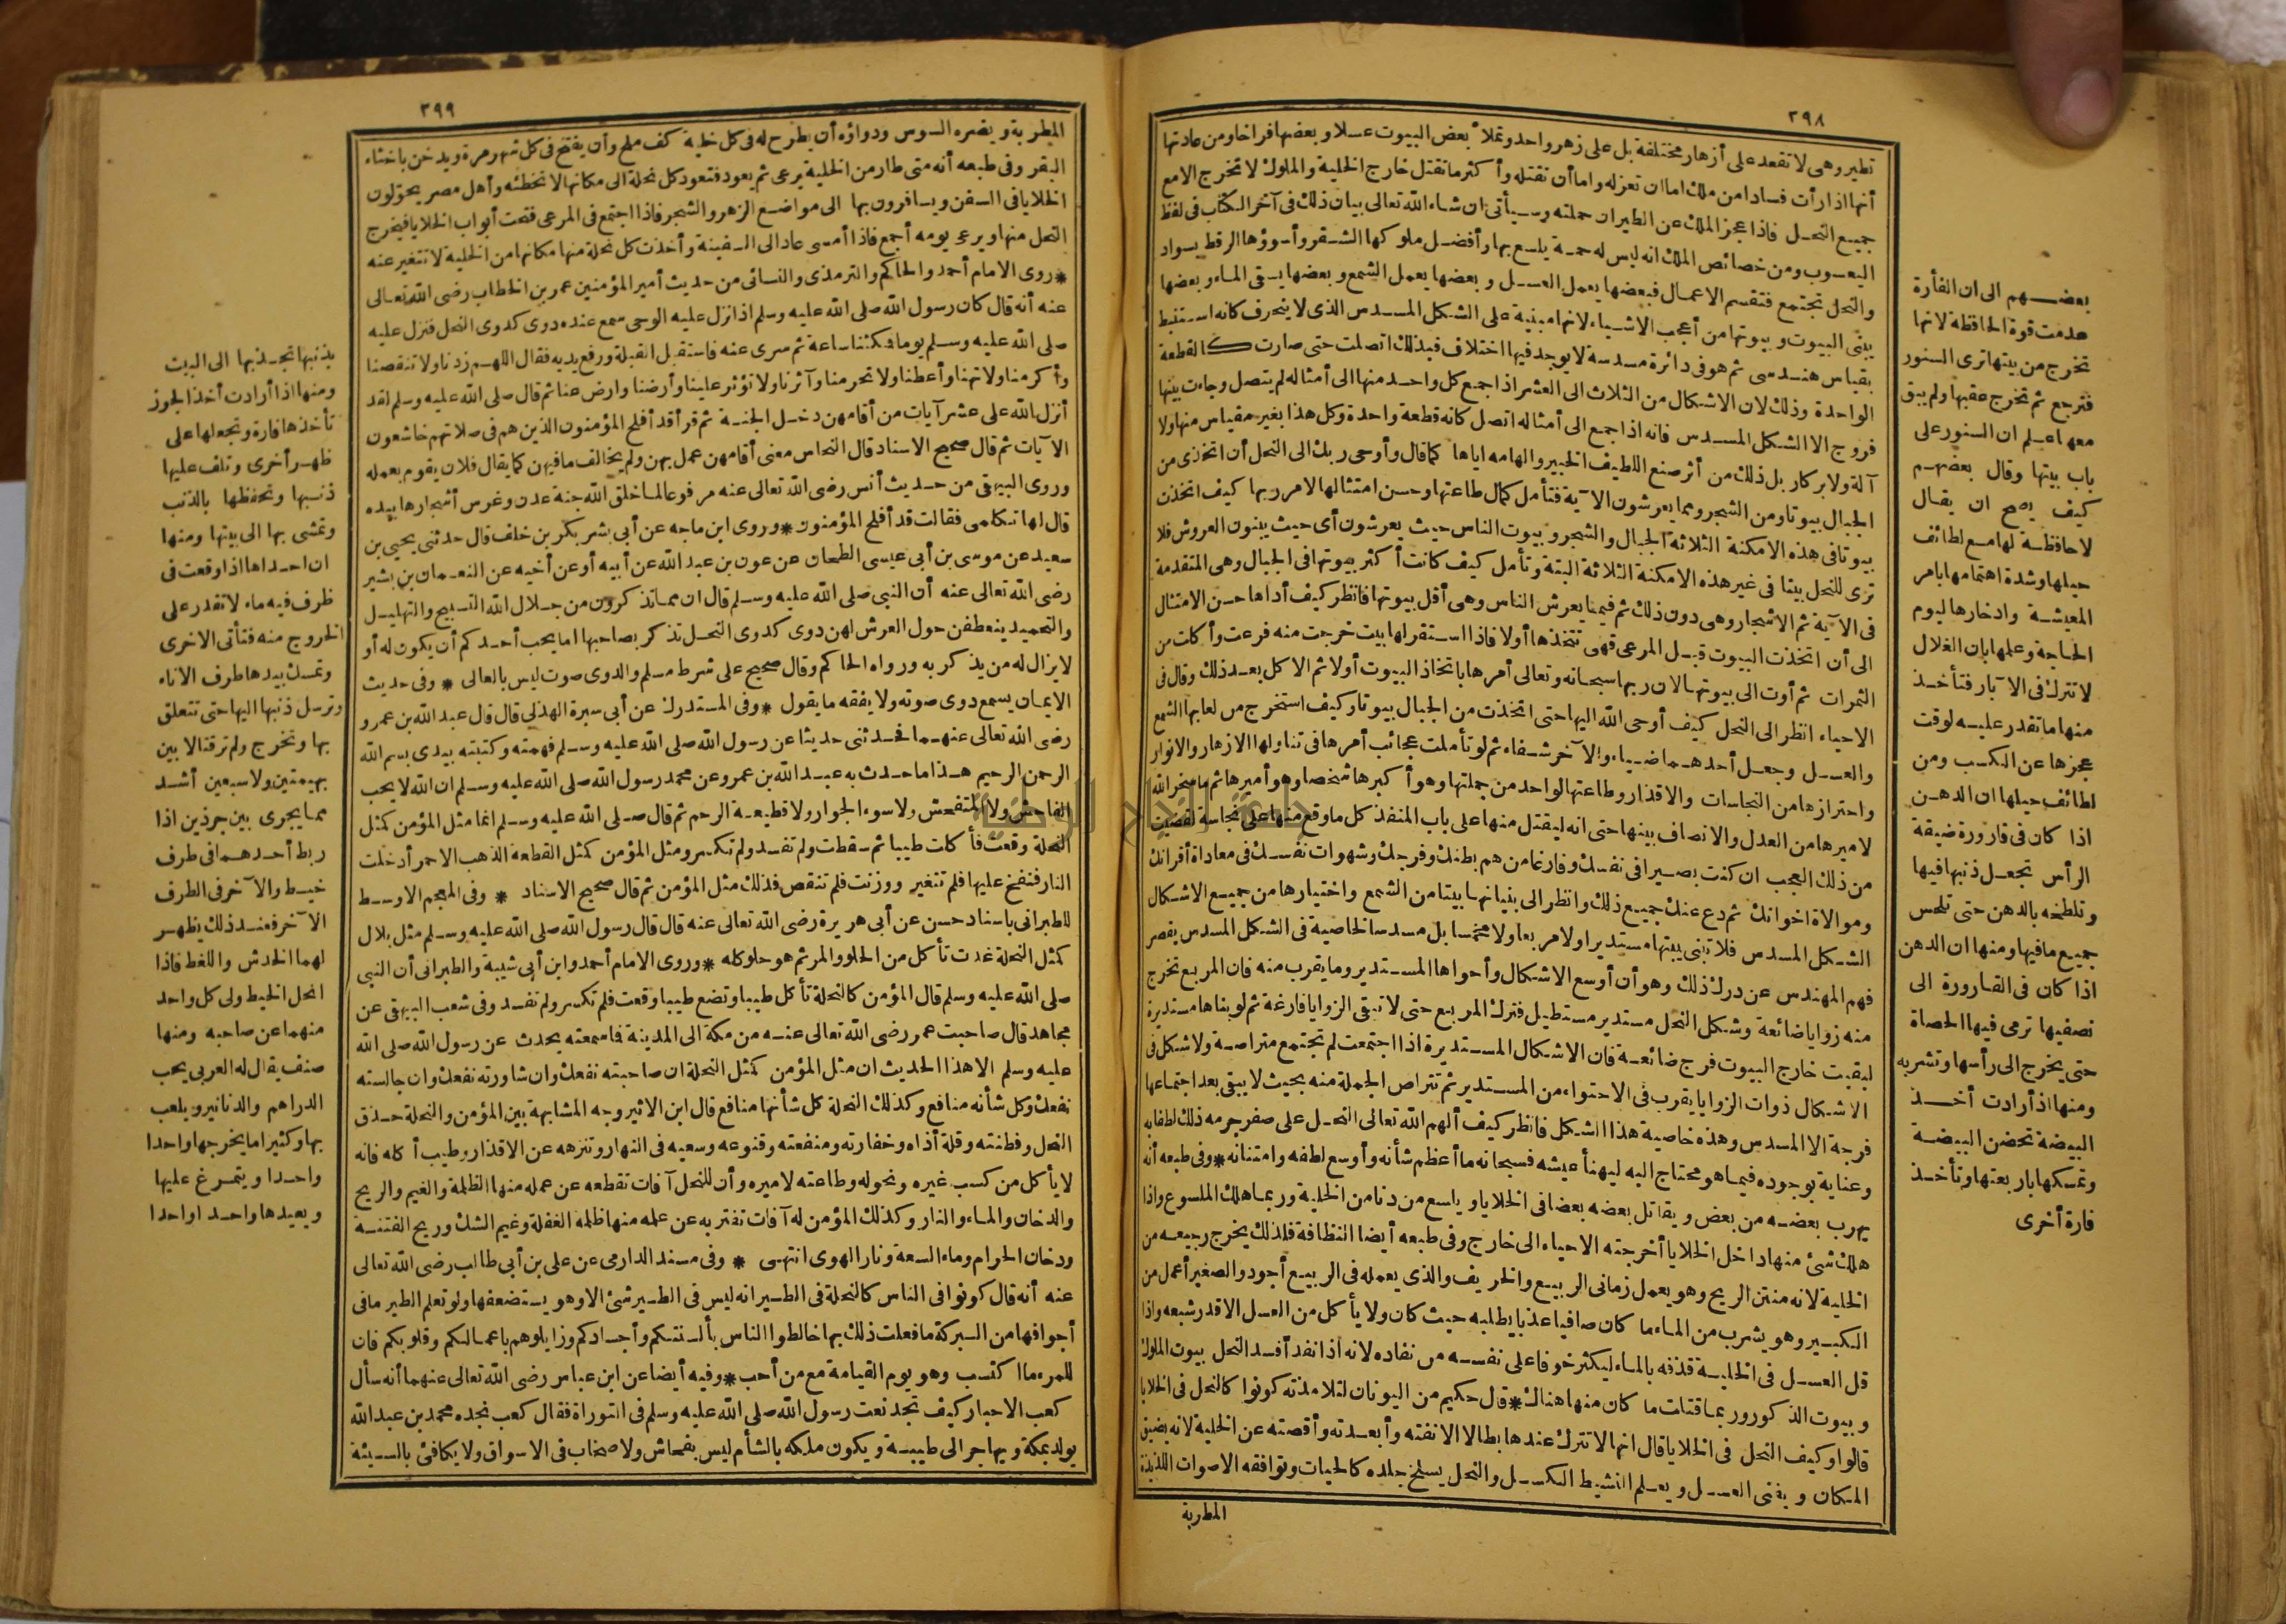 ٣٩٨
تطير وهى لا تقعد على أزهار مختلفة بل على زهر واحد وتملأ بعض البيوت عسلا وبعضها فراخا ومن عادتها
أنها اذا رأت فسادا من ملك اما ان تعزله واما أن تقتله وأكثر ما تقتل خارج الخلية والملوك لا تخرج الا مع
جميع النحل فاذا عجز الملك عن الطيران حملته وسيأتى ان شاء الله تعالى بيان ذلك فى آخر الكتاب فى لفظ
اليعسوب ومن خصائص الملك انه ليس له حمة يلسع بها وأفضل ملوكها الشقر وأسوؤها الرقط بسواد
والنحل تجتمع فتقسم الاعمال فبعضها يعمل العسل وبعضها يعمل الشمع وبعضها يسقى الماء وبعضها
يبنى البيوت وبيوتها من أعجب الاشياء لانها مبنية على الشكل المسدس الذى لا ينحرف كانه استنبط
بقياس هندسى ثم هو فى دائرة مسدسة لا يوجد فيها اختلاف فبذلك اتصلت حتى صارت كالقطعة
الواحدة وذلك لان الاشكال من الثلاث الى العشر اذا جمع كل واحد منها الى أمثاله لم يتصل وجاءت بينها
فروج الا الشكل المسدس فانه اذا جمع الى أمثاله اتصل كانه قطعة واحدة وكل هذا بغير مقياس منها ولا
آلة ولا بركار بل ذلك من أثر صنع اللطيف الخبير والهامه اياها كما قال وأوحى ربك الى النحل أن اتخذى من
الجبال بيوتا ومن الشجر ومما يعرشون الآية فتأمل كمال طاعتها وحسن امتثالها لامر ربها كيف اتخذت
بيوتا فى هذه الامكنة الثلاثة الجبال والشجر وبيوت الناس حيث يعرشون أى حيث يبنون العروش فلا
ترى للنحل بيتا فى غير هذه الامكنة الثلاثة البتة وتأمل كيف كانت أكثر بيوتها فى الجبال وهى المتقدمة
فى الآية ثم الاشجار وهى دون ذلك ثم فيما يعرش الناس وهى أقل بيوتها فانظر كيف أداها حسن الامتثال
الى أن اتخذت البيوت قبل المرعى فهى تتخذها أولا فاذا استقر لها بيت خرجت منه فرعت وأكلت من
الثمرات ثم أوت الى بيوتها لان ربها سبحانه وتعالى أمرها باتخاذ البيوت أولا ثم الاكل بعد ذلك وقال فى
الاحياء انظر الى النحل كيف أوحى الله اليها حتى اتخذت من الجبال بيوتا وكيف استخرج من لعابها الشمع
والعسل وجعل أحدهما ضياء والآخر شفاء ثم لو تأملت عجائب أمرها فى تناولها الازهار والانوار
واحترازها من النجاسات والاقذار وطاعتها لواحد من جملتها وهو أكبرها شخصا وهو أميرها ثم ما سخر الله
لاميرها من العدل والانصاف بينها حتى انه ليقتل منها على باب المنفذ كل ما وقع منها على نجاسة لقضيت
من ذلك العجب ان كنت بصيرا فى نفسك وفارغا من هم بطنك وفرجك وشهوات نفسك فى معاداة أقرانك
وموالاة اخوانك ثم دع عنك جميع ذلك وانظر الى بنيانها بيتا من الشمع واختيارها من جميع الاشكال
الشكل المسدس فلا تبنى بيتها مستديرا ولا مربعا ولا مخمسا بل مسدسا لخاصية فى الشكل المسدس يقصر
فهم المهندس عن درك ذلك وهو أن أوسع الاشكال وأحواها المستدير وما يقرب منه فان المربع تخرج
منه زوايا ضائعة وشكل النحل مستدير مستطيل فترك المربع حتى لا تبقى الزوايا فارغة ثم لو بناها مستديرة
لبقيت خارج البيوت فرج ضائعة فان الاشكال المستديرة اذا اجتمعت لم تجتمع متراصة ولا شكل فى
الاشكال ذوات الزوايا يقرب فى الاحتواء من المستدير ثم تتراص الجملة منه بحيث لا يبقى بعد اجتماعها
فرجة الا المسدس وهذه خاصية هذا الشكل فانظر كيف ألهم الله تعالى النحل على صغر جرمه ذلك لطفا به
وعناية بوجوده فيما هو محتاج اليه ليهنأ عيشه فسبحانه ما أعظم شأنه وأوسع لطفه وامتنانه * وفى طبعه أنه
يهرب بعضه من بعض ويقاتل بعضه بعضا فى الخلايا ويلسع من دنا من الخلية وربما هلك الملسوع واذا
هلك شئ منها داخل الخلايا أخرجته الاحياء الى خارج وفى طبعه أيضا النظافة فلذلك يخرج رجيعه من
الخلية لانه منتن الريح وهو يعمل زمانى الربيع والخريف والذى يعمله فى الربيع أجود والصغير أعمل من
الكبير وهو يشرب من الماء ما كان صافيا عذبا يطلبه حيث كان ولا يأكل من العسل الا قدر شبعه واذا
قل العسل فى الخلية قذفه بالماء ليكثر خوفا على نفسه من نفاده لانه اذا نفد أفسد النحل بيوت الملوك
وبيوت الذكور وربما قتلت ما كان منها هناك * قال حكيم من اليونان لتلامذته كونوا كالنحل فى الخلايا
قالوا وكيف النحل فى الخلايا قال انها لا تترك عندها بطالا الا نفته وأبعدته وأقصته عن الخلية لانه يضيق
المكان ويفنى العسل ويعلم النشيط الكسل والنحل يسلخ جلده كالحيات وتوافقه الاصوات اللذيذة
المطربة
بعضهم الى ان الفأرة
عدمت قوة الحافظة لانها
تخرج من بيتها ترى السنور
فترجع ثم تخرج عقبها ولم يبق
معها علم ان السنور على
باب بيتها وقال بعضهم
كيف يصح ان يقال
لا حافظة لها مع لطائف
حيلها وشدة اهتمامها بامر
المعيشة وادخارها ليوم
الحاجة وعلمها بان الغلال
لا تترك فى الآبار فتأخذ
منها ما تقدر عليه لوقت
عجزها عن الكسب ومن
لطائف حيلها ان الدهن
اذا كان فى قارورة ضيقة
الرأس تجعل ذنبها فيها
وتلطخه بالدهن حتى تلحس
جميع ما فيها ومنها ان الدهن
اذا كان فى القارورة الى
نصفيها ترمى فيها الحصاة
حتى يخرج الى رأسها وتشربه
ومنها اذ أرادت أخذ
البيضة تحضن البيضة
وتمسكها باربعتها وتأخذ
فارة أخرى
٣٩٩
المطربة ويضره السوس ودواؤه أن يطرح له فى كل خلية كف ملح وأن يفتح فى كل شهر مرة ويدخن باخثاء
البقر وفى طبعه أنه متى طار من الخلية يرعى ثم يعود فتعود كل نحلة الى مكانها لا تخطئه وأهل مصر يحولون
الخلايا فى السفن ويسافرون بها الى مواضع الزهر والشجر فاذا اجتمع فى المرعى فتحت أبواب الخلايا فيخرج
النحل منها ويرعى يومه أجمع فاذا أمسى عاد الى السفينة وأخذت كل نحلة منها مكانها من الخلية لا تتغير عنه
* روى الامام أحمد والحاكم والترمذى والنسائى من حديث أمير المؤمنين عمر بن الخطاب رضى الله تعالى
عنه أنه قال كان رسول الله صلى الله عليه وسلم اذا نزل عليه الوحى سمع عنده دوى كدوى النحل فنزل عليه
صلى الله عليه وسلم يوما فمكثنا ساعة ثم سرى عنه فاستقبل القبلة ورفع يديه فقال اللهم زدنا ولا تنقصنا
وأكرمنا ولا تهنا وأعطنا ولا تحرمنا وآثرنا ولا تؤثر علينا وأرضنا وارض عنا ثم قال صلى الله عليه وسلم لقد
أنزل الله على عشر آيات من أقامهن دخل الجنة ثم قرأ قد أفلح المؤمنون الذين هم فى صلاتهم خاشعون
الآيات ثم قال صحيح الاسناد قال النحاس معنى أقامهن عمل بهن ولم يخالف ما فيهن كما يقال فلان يقوم بعمله
وروى البيهقى من حديث أنس رضى الله تعالى عنه مرفوعا لما خلق الله جنة عدن وغرس أشجارها بيده
قال لها تكلمى فقالت قد أفلح المؤمنون * وروى ابن ماجه عن أبى بشر بكر بن خلف قال حدثنى يحيى بن
سعيد عن موسى بن أبى عيسى الطحان عن عون بن عبد الله عن أبيه أو عن أخيه عن النعمان بن بشير
رضى الله تعالى عنه أن النبى صلى الله عليه وسلم قال ان مما تذكرون من جلال الله التسبيح والتهليل
والتحميد ينعطفن حول العرش لهن دوى كدوى النحل تذكر بصاحبها اما يحب أحدكم أن يكون له أو
لا يزال له من يذكر به ورواه الحاكم وقال صحيح على شرط مسلم والدوى صوت ليس بالعالى * وفى حديث
الايمان يسمع دوى صوته ولا يفقه ما يقول * وفى المستدرك عن أبى سبرة الهذلى قال قال عبد الله بن عمرو
رضى الله تعالى عنهما فحدثنى حديثا عن رسول الله صلى الله عليه وسلم فهمته وكتبته بيدى بسم الله
الرحمن الرحيم هذا ما حدث به عبد الله بن عمرو عن محمد رسول الله صلى الله عليه وسلم ان الله لا يحب
الفاحش ولا المتفحش ولا سوء الجوار ولا قطيعة الرحم ثم قال صلى الله عليه وسلم انما مثل المؤمن كمثل
النحلة وقعت فأكلت طيبا ثم سقطت ولم تفسد ولم تكسر ومثل المؤمن كمثل القطعة الذهب الاحمر أدخلت
النار فنفخ عليها فلم تتغير ووزنت فلم تنقص فذلك مثل المؤمن ثم قال صحيح الاسناد * وفى المعجم الاوسط
للطبرانى باسناد حسن عن أبى هريرة رضى الله تعالى عنه قال قال رسول الله صلى الله عليه وسلم مثل بلال
كمثل النحلة غدت تأكل من الحلو والمر ثم هو حلو كله * وروى الامام أحمد وابن أبى شيبة والطبرانى أن النبى
صلى الله عليه وسلم قال المؤمن كالنحلة تأكل طيبا وتضع طيبا وقعت فلم تكسر ولم تفسد وفى شعب البيهقى عن
مجاهد قال صاحبت عمر رضى الله تعالى عنه من مكة الى المدينة فما سمعته يحدث عن رسول الله صلى الله
عليه وسلم الا هذا الحديث ان مثل المؤمن كمثل النحلة ان صاحبته نفعك وان شاورته نفعك وان جالسته
نفعك وكل شأنه منافع وكذلك النحلة كل شأنها منافع قال ابن الاثير وجه المشابهة بين المؤمن والنحلة حذق
النحل وفطنته وقلة أذاه وحقارته ومنفعته وقنوعه وسعيه فى النهار وتنزهه عن الاقذار وطيب أكله فانه
لا يأكل من كسب غيره ونحوله وطاعته لاميره وأن للنحل آفات تقطعه عن عمله منها الظلمة والغيم والريح
والدخان والماء والنار وكذلك المؤمن له آفات تفتر به عن عمله منها ظلمة الغفلة وغيم الشك وريح الفتنة
ودخان الحرام وماء السعة ونار الهوى انتهى * وفى مسند الدارمى عن على بن أبى طالب رضى الله تعالى
عنه أنه قال كونوا فى الناس كالنحلة فى الطير انه ليس فى الطير شئ الا وهو يستضعفها ولو تعلم الطير ما فى
أجوافها من البركة ما فعلت ذلك بها خالطوا الناس بألسنتكم وأجسادكم وزايلوهم باعمالكم وقلوبكم فان
للمرء ما اكتسب وهو يوم القيامة مع من أحب * وفيه أيضا عن ابن عباس رضى الله تعالى عنهما أنه سأل
كعب الاحبار كيف تجد نعت رسول الله صلى الله عليه وسلم فى التوراة فقال كعب نجده محمد بن عبد الله
يولد بمكة ويهاجر الى طيبة ويكون ملكه بالشأم ليس بفحاش ولا صخاب فى الاسواق ولا يكافئ بالسيئة
بذنبها تجذبها الى البيت
ومنها اذا أرادت أخذ الجوز
تأخذها فارة وتجعلها على
ظهر أخرى وتلف عليها
ذنبها وتحفظها بالذنب
وتمشى بها الى بيتها ومنها
ان احداها اذا وقعت فى
ظرف فيه ماء لا تقدر على
الخروج منه فتأتى الاخرى
وتمسك بيدها طرف الاناء
وترسل ذنبها اليها حتى تتعلق
بها وتخرج ولم ترقتالا بين
بهيمتين ولا سبعين أشد
مما يجرى بين جرذين اذا
ربط أحدهما فى طرف
خيط والآخر فى الطرف
الآخر فعند ذلك يظهر
لهما الخدش واللغط فاذا
انحل الخيط ولى كل واحد
منهما عن صاحبه ومنها
صنف يقال له العربى يحب
الدراهم والدنانير ويلعب
بها وكثيرا ما يخرجها واحدا
واحدا ويتمرغ عليها
ويعيدها واحدا واحدا